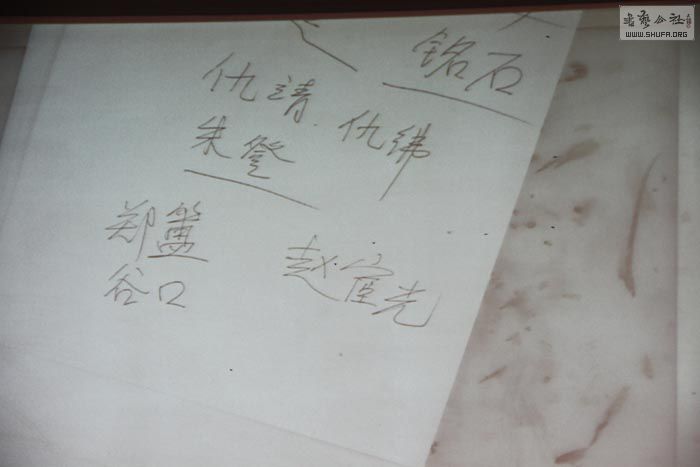 書藝公社
WWW.SHUFA.ORG
铭石
仇靖 仇绋
朱登
郑簠 赵宧光
谷口